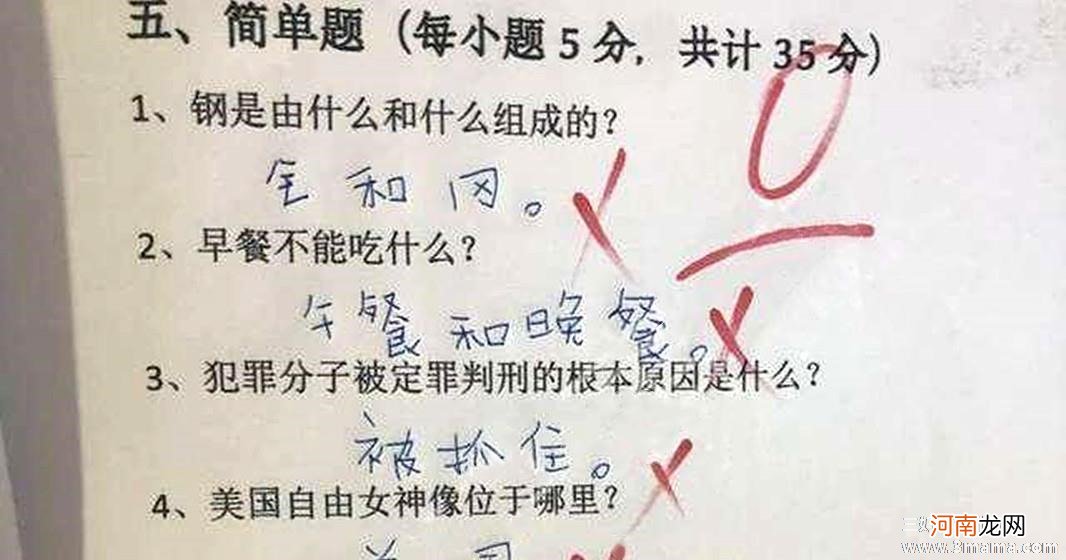 五、简单题（每小题5分，共计35分）
0
1、钢是由什么和什么组成的？
全和冈。
2、早餐不能吃什么？
午餐和晚餐。
3、犯罪分子被定罪判刑的根本原因是什么？
被抓住。
4、美国自由女神像位于哪里？
河南龙网